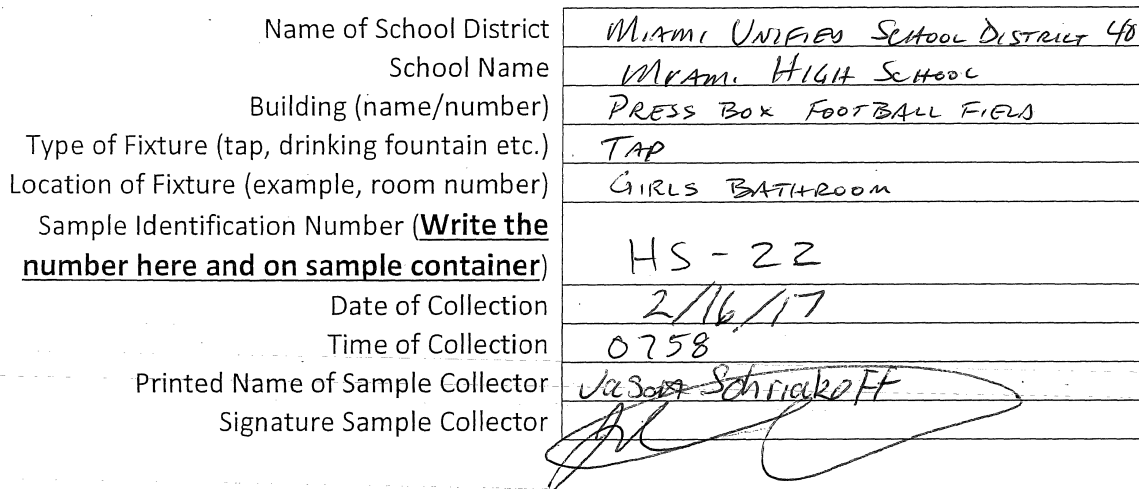 Name of School District MIAMI UNIFIED SCHOOL DISTRICT 40
School Name MIAMI HIGH SCHOOL
Building (name/number) PRESS BOX FOOTBALL FIELD
Type of Fixture (tap, drinking fountain etc.) TAP
Location of Fixture (example, room number) GIRLS BATHROOM
Sample Identification Number (Write the
number here and on sample container) HS-22
Date of Collection 2/16/17
Time of Collection 0758
Printed Name of Sample Collector Jason
Signature Sample Collector